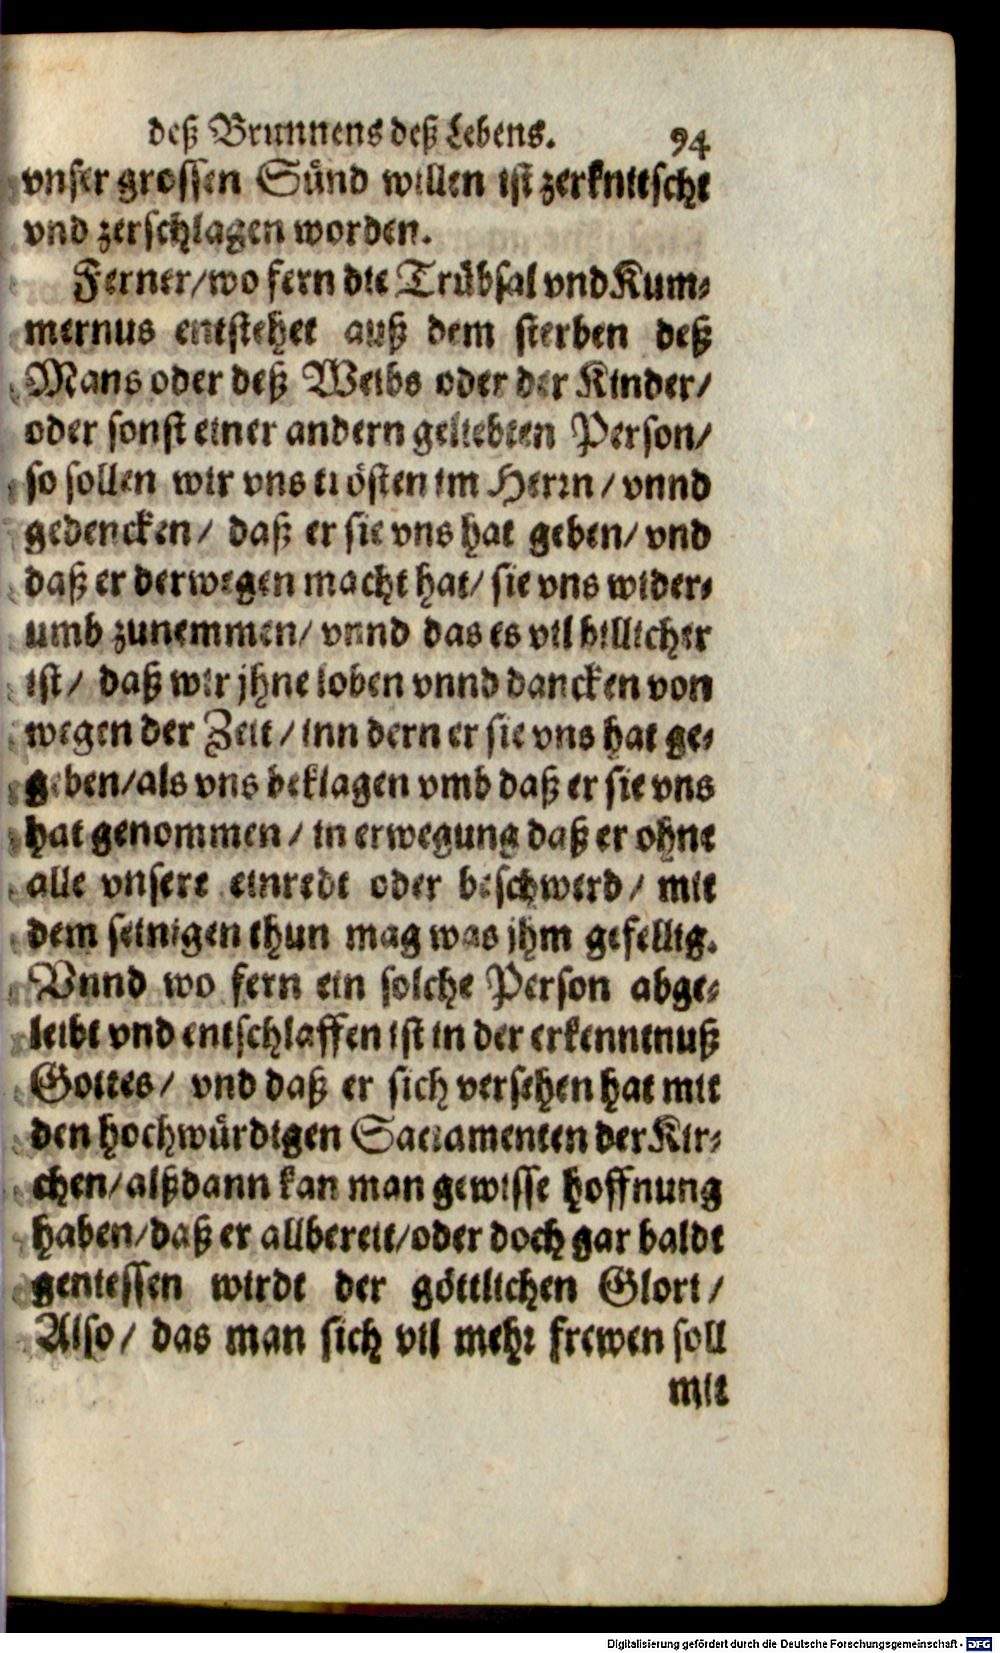 deß Brunnens deß Lebens. 94
vnser grossen Sünd willen ist zerknitscht
vnd zerschlagen worden.
Ferner/wo fern die Trübsal vnd Kum⸗
mernus entstehet auß dem sterben deß
Mans oder deß Weibs oder der Kinder/
oder sonst einer andern geliebten Person/
so sollen wir vns trösten im Herrn/ vnnd
gedencken/ daß er sie vns hat geben/ vnd
daß er derwegen macht hat/ sie vns wider⸗
umb zunemmen/ vnnd das es vil billicher
ist/ daß wir jhne loben vnnd dancken von
wegen der Zeit/ inn dern er sie vns hat ge⸗
geben/als vns beklagen vmb daß er sie vns
hat genommen/ in erwegung daß er ohne
alle vnsere einrede oder beschwerd/ mit
dem seinigen thun mag was jhm gefellig.
Vnnd wo fern ein solche Person abge⸗
leibt vnd entschlaffen ist in der erkenntnuß
Gottes/ vnd daß er sich versehen hat mit
den hochwürdigen Sacramenten der Kir⸗
chen/alßdann kan man gewisse hoffnung
haben/daß er allbereit/oder doch gar baldt
geniessen wirdt der göttlichen Glori/
Also/ das man sich vil mehr frewen soll
mit
Digitalisierung gefördert durch die Deutsche Forschungsgemeinschaft - DFG